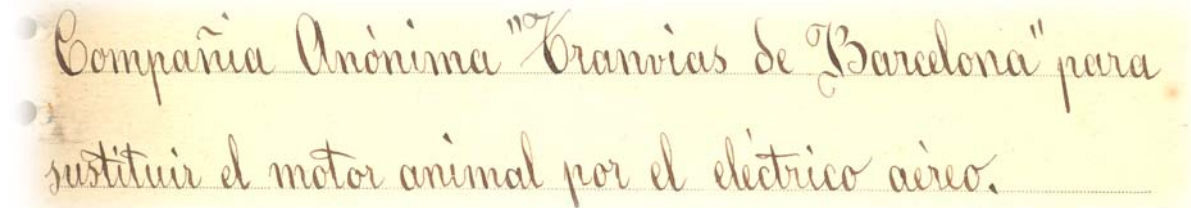 Compañia Anónima "Tranvias de Barcelona" para
sustituir el motor animal por el eléctrico aéreo.